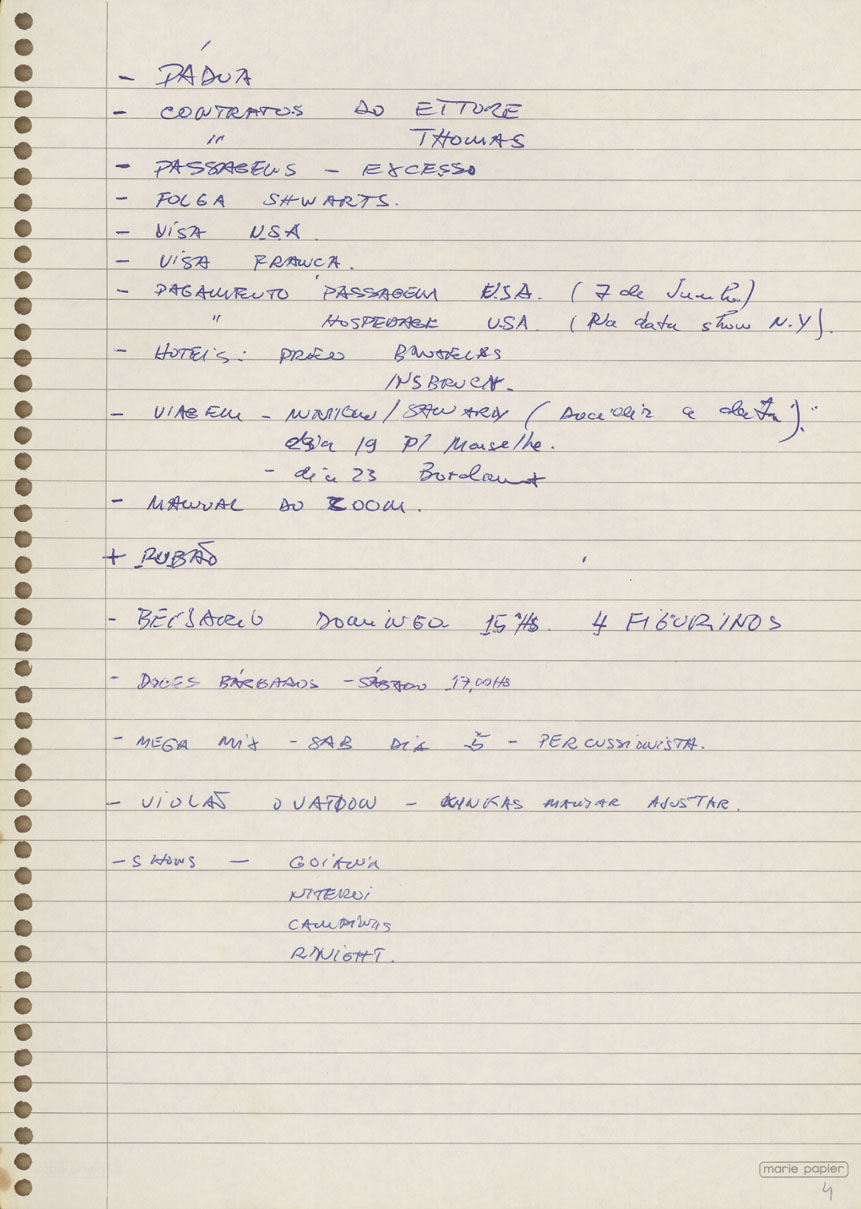 - PÁDUA
- CONTRATOS DO ETTORE
" THOMAS
- PASSAGENS - EXCESSO
- FOLGA SHWARTS.
- VISA U.S.A.
- VISA FRANCA.
- PAGAMENTO PASSAGEM U.S.A. (7 de Junho)
" HOSPEDAGE USA. (Na data show N.Y).
- HOTEIS: PREÇO BRUXELAS
INSBRUCK.
- VIAGEM - MUNICH / (Decidir a data).
dia 19 P/ Marselhe.
- dia 23 Bordeaux
- MANUAL DO ZOOM.
+ RUBÃO
- BELISARIO DOMINGO 15 Hs. 4 FIGURINOS
- DOCES BÁRBAROS - SÁBADO 17,00 HS
- MEGA MIX - SAB DIA 5 - PERCUSSIONISTA.
- VIOLÃO OVATION - MANDAR AJUSTAR.
- SHOWS - GOIANIA
NITEROI
CAMPINAS
R.KNIGHT.
marie papier
4